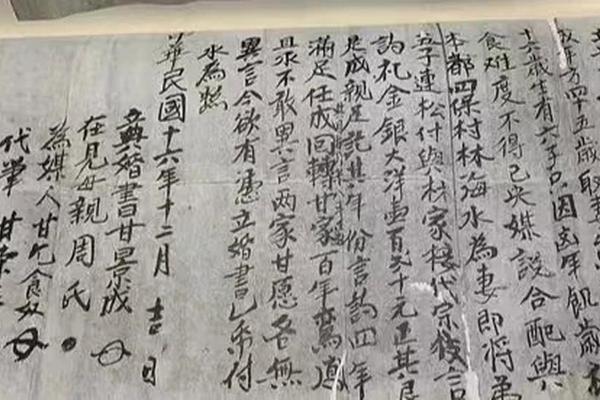 年方四十五歲取妻
十六歲生有六子只因凶年飢歲
食难度不得已央媒說合配與
本都四保村林海水為妻即將弟
五子連松付與林家接代宗後言
訽礼金銀大洋壹百六十元正其良
是成親足訖其年份言訽四年
滿足任成回轉甘家百年鸞鳳
且永不敢異言两家甘愿各無
異言今欲有憑立婚書乙紙付
永為照
華民國十六年十二月 吉日
立典婚書甘景成
在見母親周氏
為媒人甘乞食奴
代筆甘